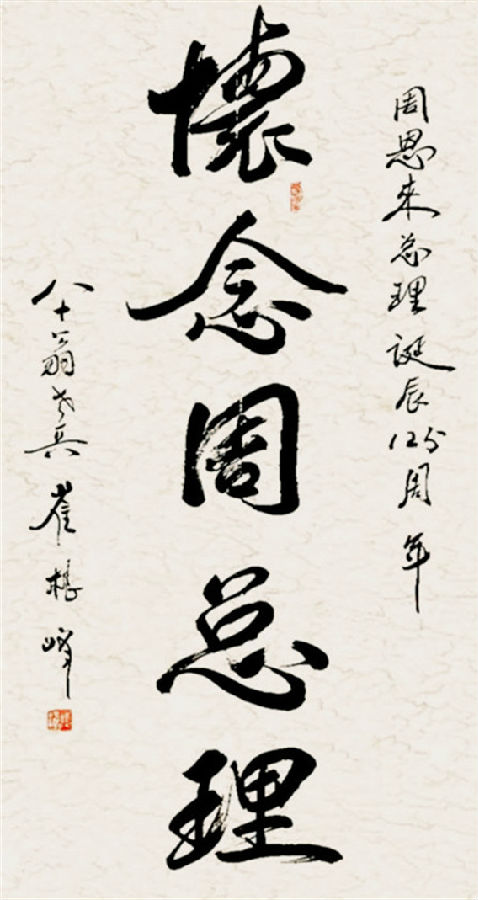 周恩来总理诞辰125周年
懷念周总理
八十翁老兵崔 峰